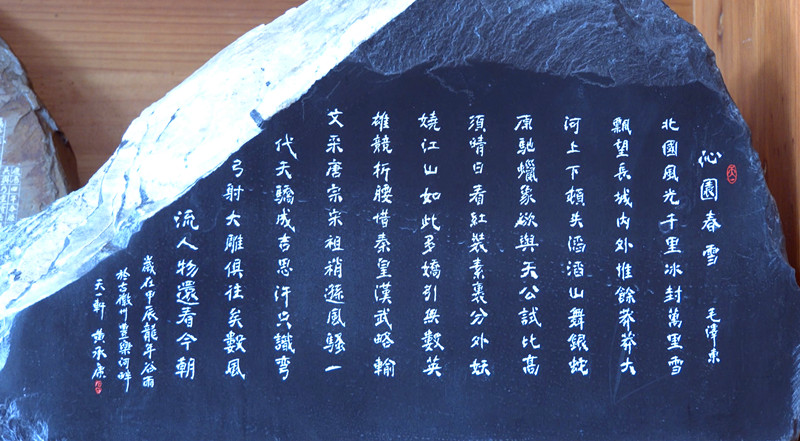 沁園春雪 毛澤東
北國風光千里冰封萬里雪
飄望長城內外惟餘莽莽大
河上下頓失滔滔山舞銀蛇
原馳蠟象欲與天公試比高
須晴日看紅裝素裹分外妖
嬈江山如此多嬌引無數英
雄競折腰惜秦皇漢武略輸
文采唐宗宋祖稍遜風騷一
代天驕成吉思汗只識彎
弓射大雕俱往矣數風
流人物還看今朝
歲在甲辰龍年谷雨
於古徽州豐樂河畔
天軒 黄承康